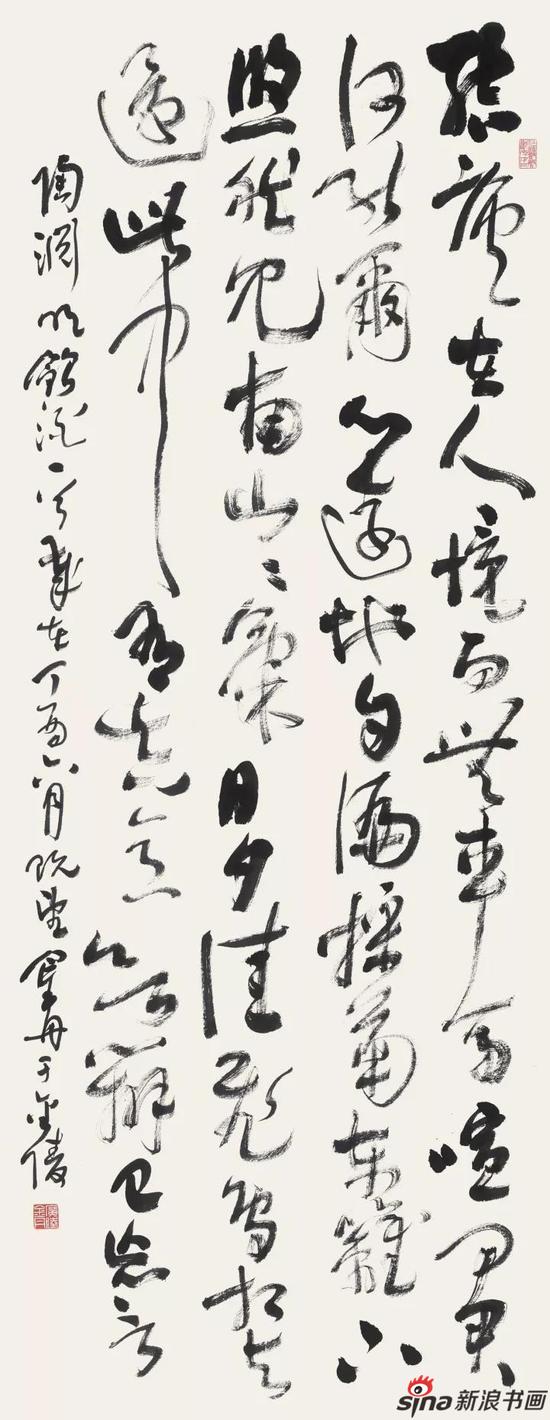 結廬在人境而無車馬喧問君
何能爾心遠地自偏採菊東籬下
悠然見南山〻氣日夕佳飛鳥相與
還此中有真意欲辯已忘言
陶渊明飲酒一首歲在丁酉六月既望于金陵
sina新浪书画